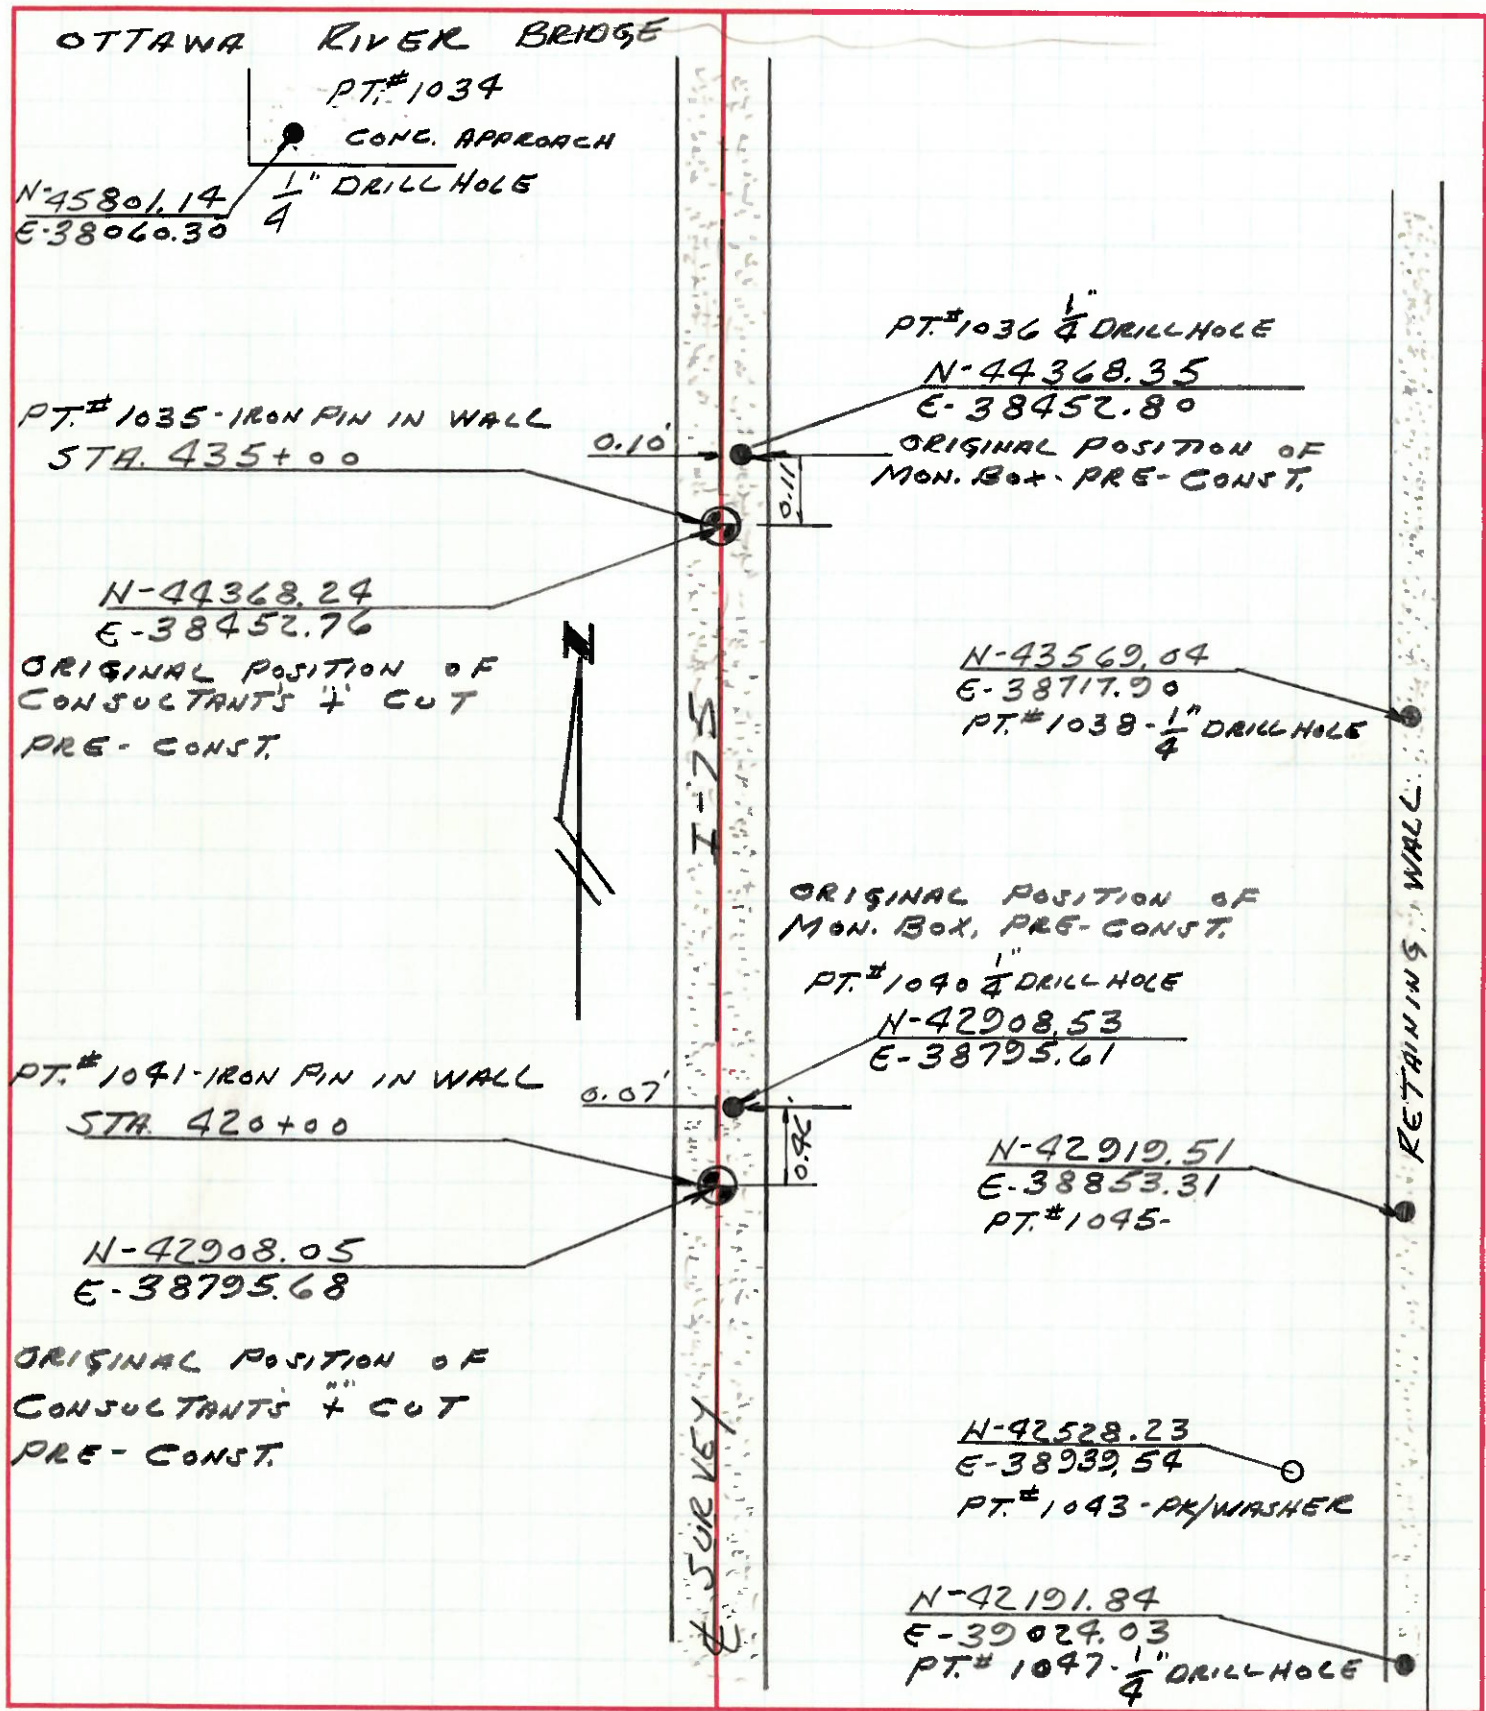 OTTAWA RIVER BRIDGE
PT.# 1034
CONC. APPROACH
1/4" DRILL HOLE
N-45801.14
E-38060.30
PT.# 1036 1/4" DRILL HOLE
N-44368.35
E-38452.80
ORIGINAL POSITION OF
MON. BOX - PRE-CONST.
PT.# 1035-IRON PIN IN WALL
STA. 435+00
0.10'
0.11
N-44368.24
E-38452.76
ORIGINAL POSITION OF
CONSULTANT'S "+" CUT
PRE-CONST.
N
I-75
N-43569.04
E-38717.90
PT.# 1038-1/4" DRILL HOLE
RETAINING WALL
ORIGINAL POSITION OF
MON. BOX, PRE-CONST.
PT.# 1040 1/4" DRILL HOLE
N-42908.53
E-38795.61
PT.# 1041-IRON PIN IN WALL
STA. 420+00
0.07'
N-42919.51
E-38853.31
PT.# 1045-
N-42908.05
E-38795.68
ORIGINAL POSITION OF
CONSULTANT'S "+" CUT
PRE-CONST.
℄ SURVEY
N-42528.23
E-38939.54
PT.# 1043-PK/WASHER
N-42191.84
E-39024.03
PT.# 1047-1/4" DRILL HOLE